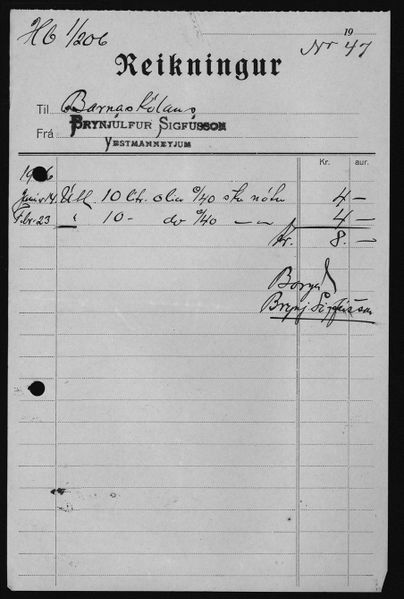 H6 1/206
19
Nr 47
Reikningur
Til Barnaskólans
Frá BRYNJÚLFUR SIGFÚSSON
VESTMANNEYJUM
Kr. aur.
Janúar 14. Útl. 10 ltr. olia º/40 sku nótu 4 —
Febr. 23 " 10 - do º/40 — " — 4 —
Kr. 8. —
Borgað
Brynj Sigfússon